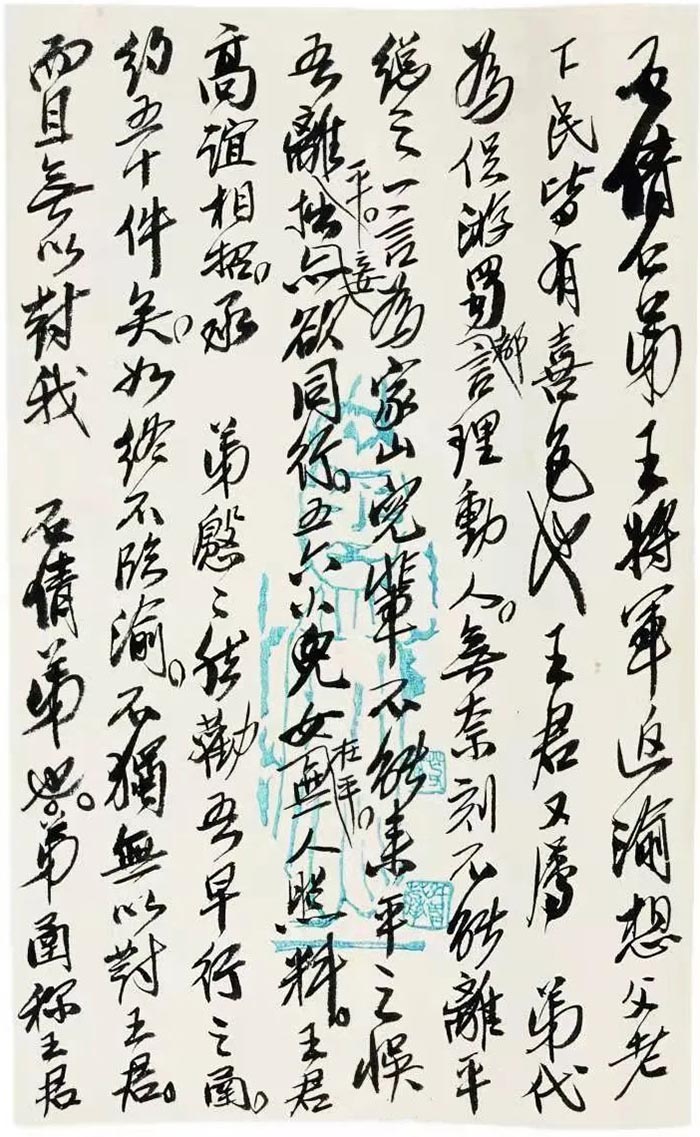 石倩仁弟王將軍返渝想父老
下民皆有喜色也王君又屬弟代
為促游蜀都言理動人。無奈刻不能離平
總之一言為家山兒輩不能來平之悮
吾離平。拙妾亦欲同行。五六小兒女在平。無人照料。王君
高誼相招。承弟慇〻勸吾早行之函。
約五十件矣。如終不臨渝。不獨無以對王君。
而且無以對我石倩弟也。弟函稱王君